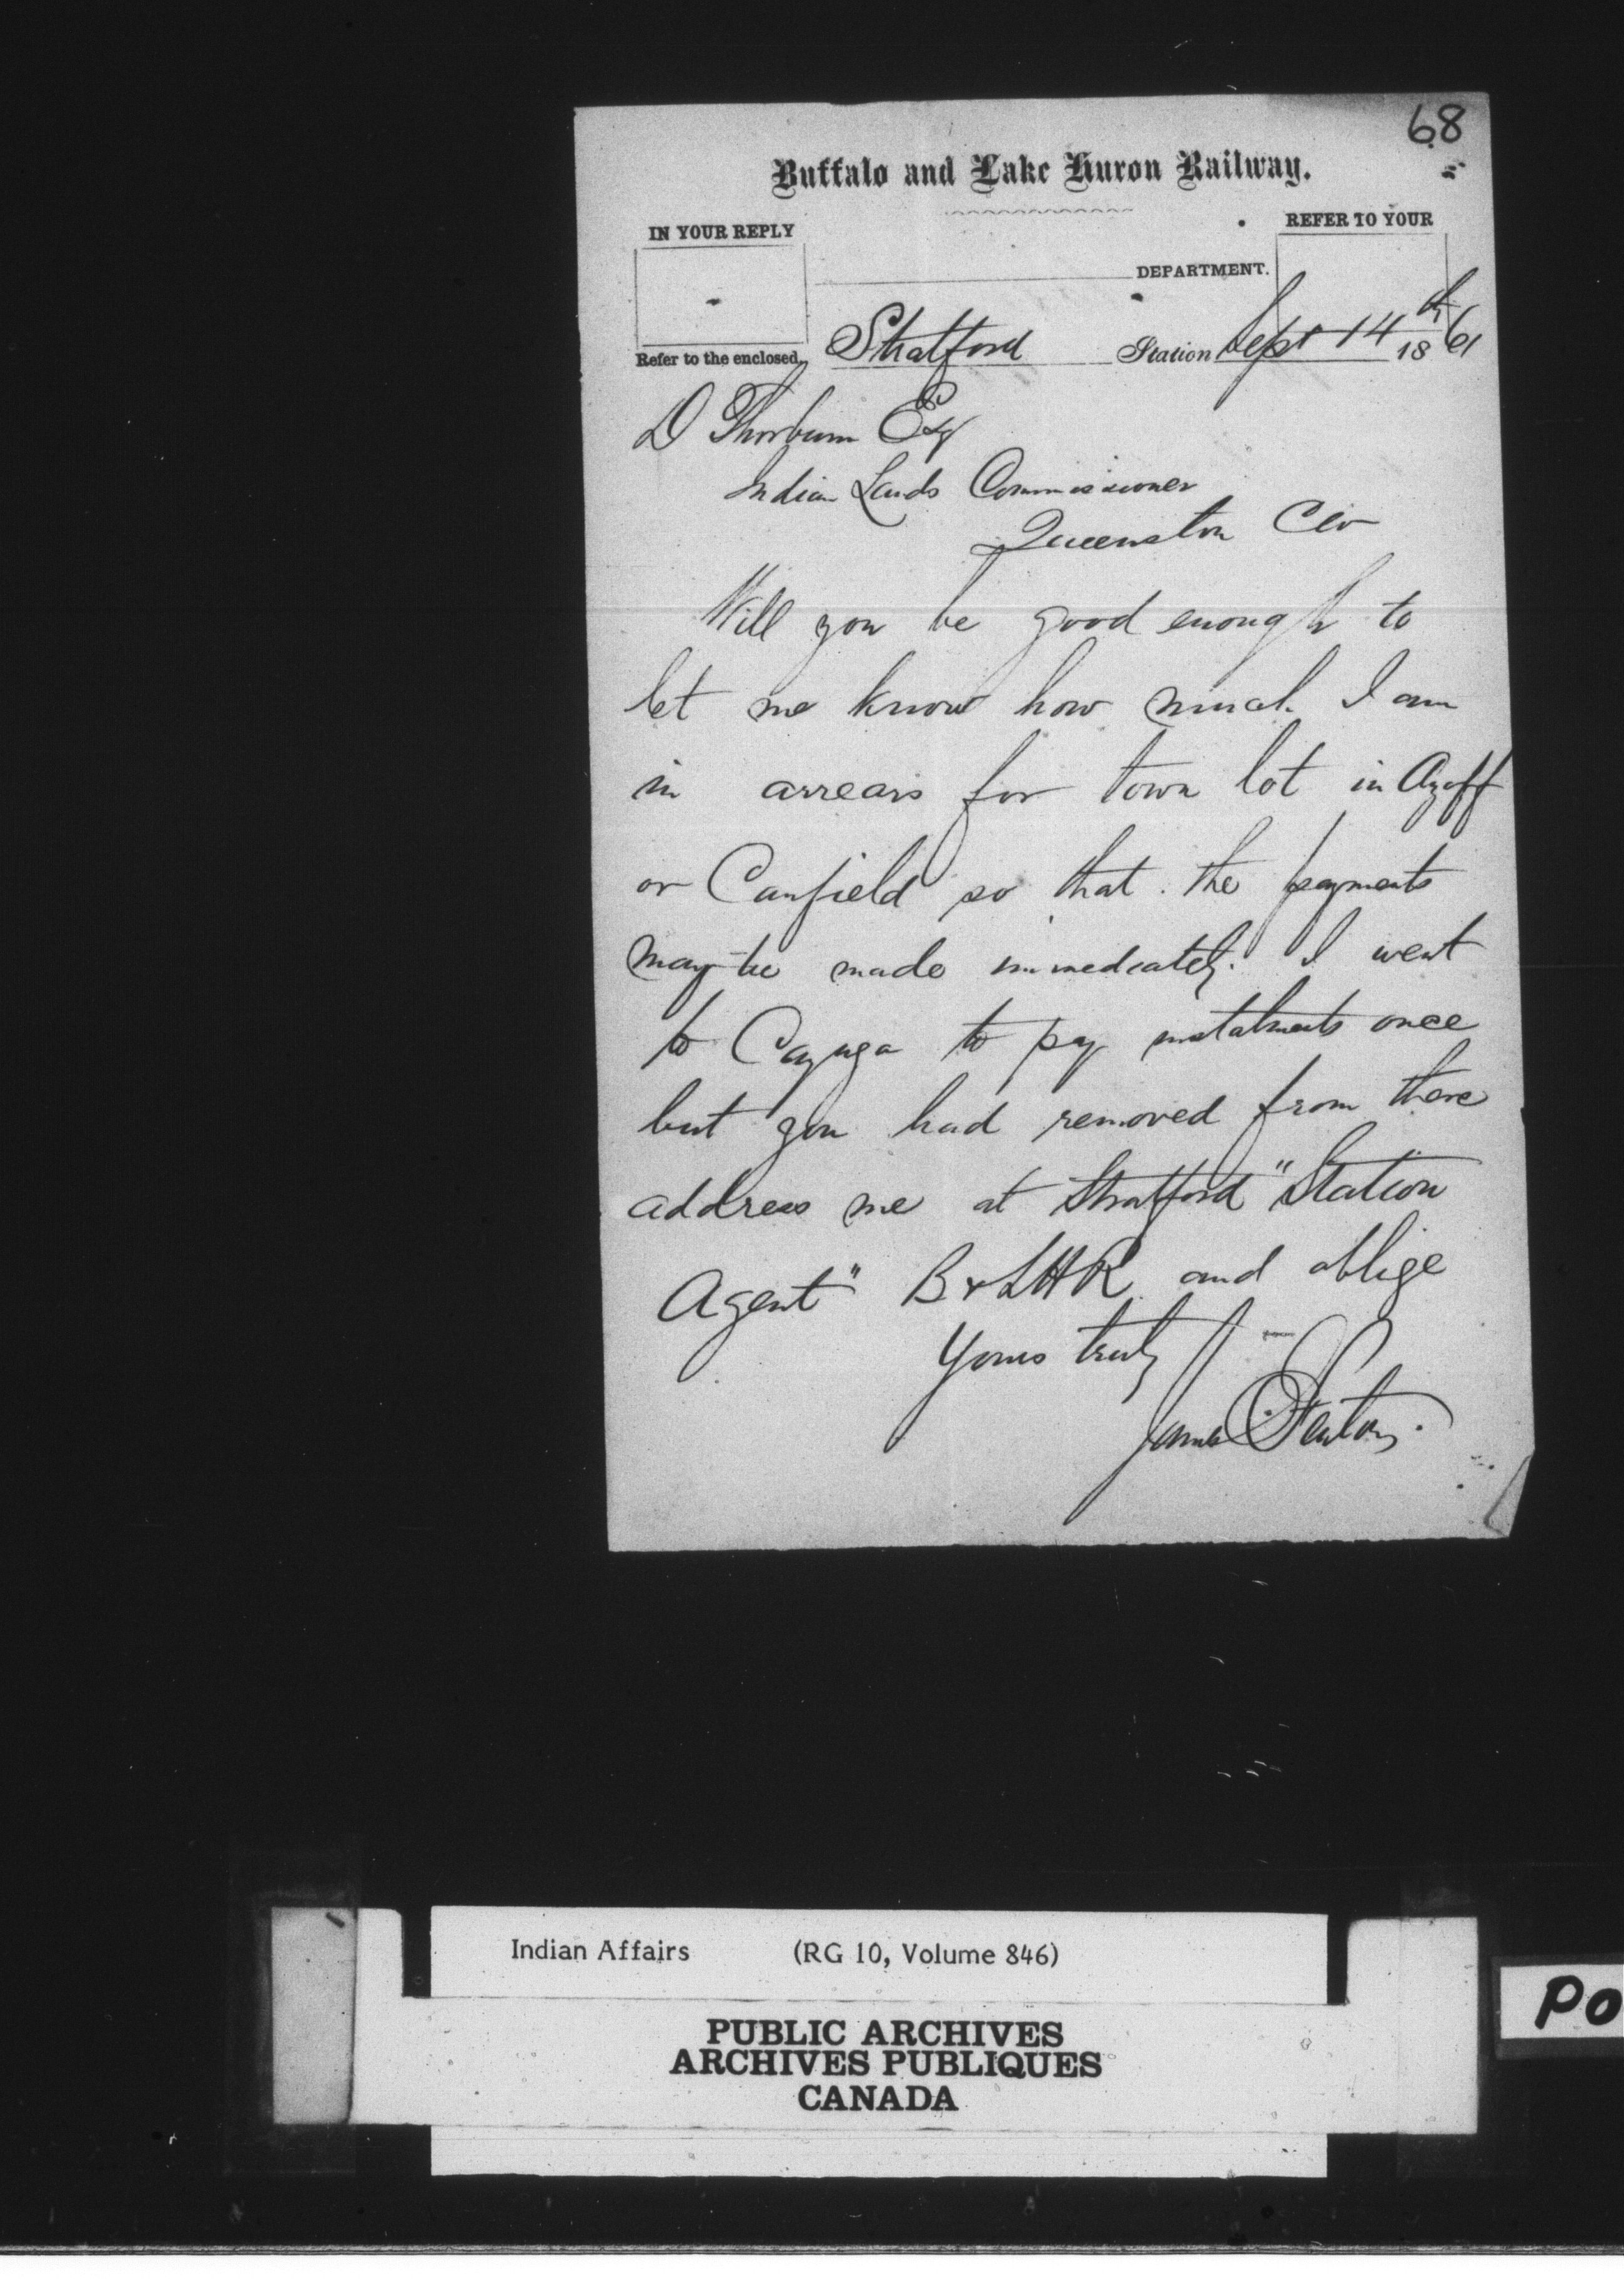 68
Buffalo and Lake Huron Railway.
IN YOUR REPLY
REFER TO YOUR
DEPARTMENT.
Refer to the enclosed.
Stratford Station Sept 14th 1861
D Thorburn Esq
Indian Lands Commissioner
Queenston CW
Will you be good enough to
let me know how much I am
in arrears for town lot in Azoff
or Canfield so that the payments
may be made immediately. I went
to Cayuga to pay instalments once
but you had removed from there
address me at Stratford "Station
Agent" B & LHR and oblige
Yours truly
James Fenton
Indian Affairs (RG 10, Volume 846)
PUBLIC ARCHIVES
ARCHIVES PUBLIQUES
CANADA
PO